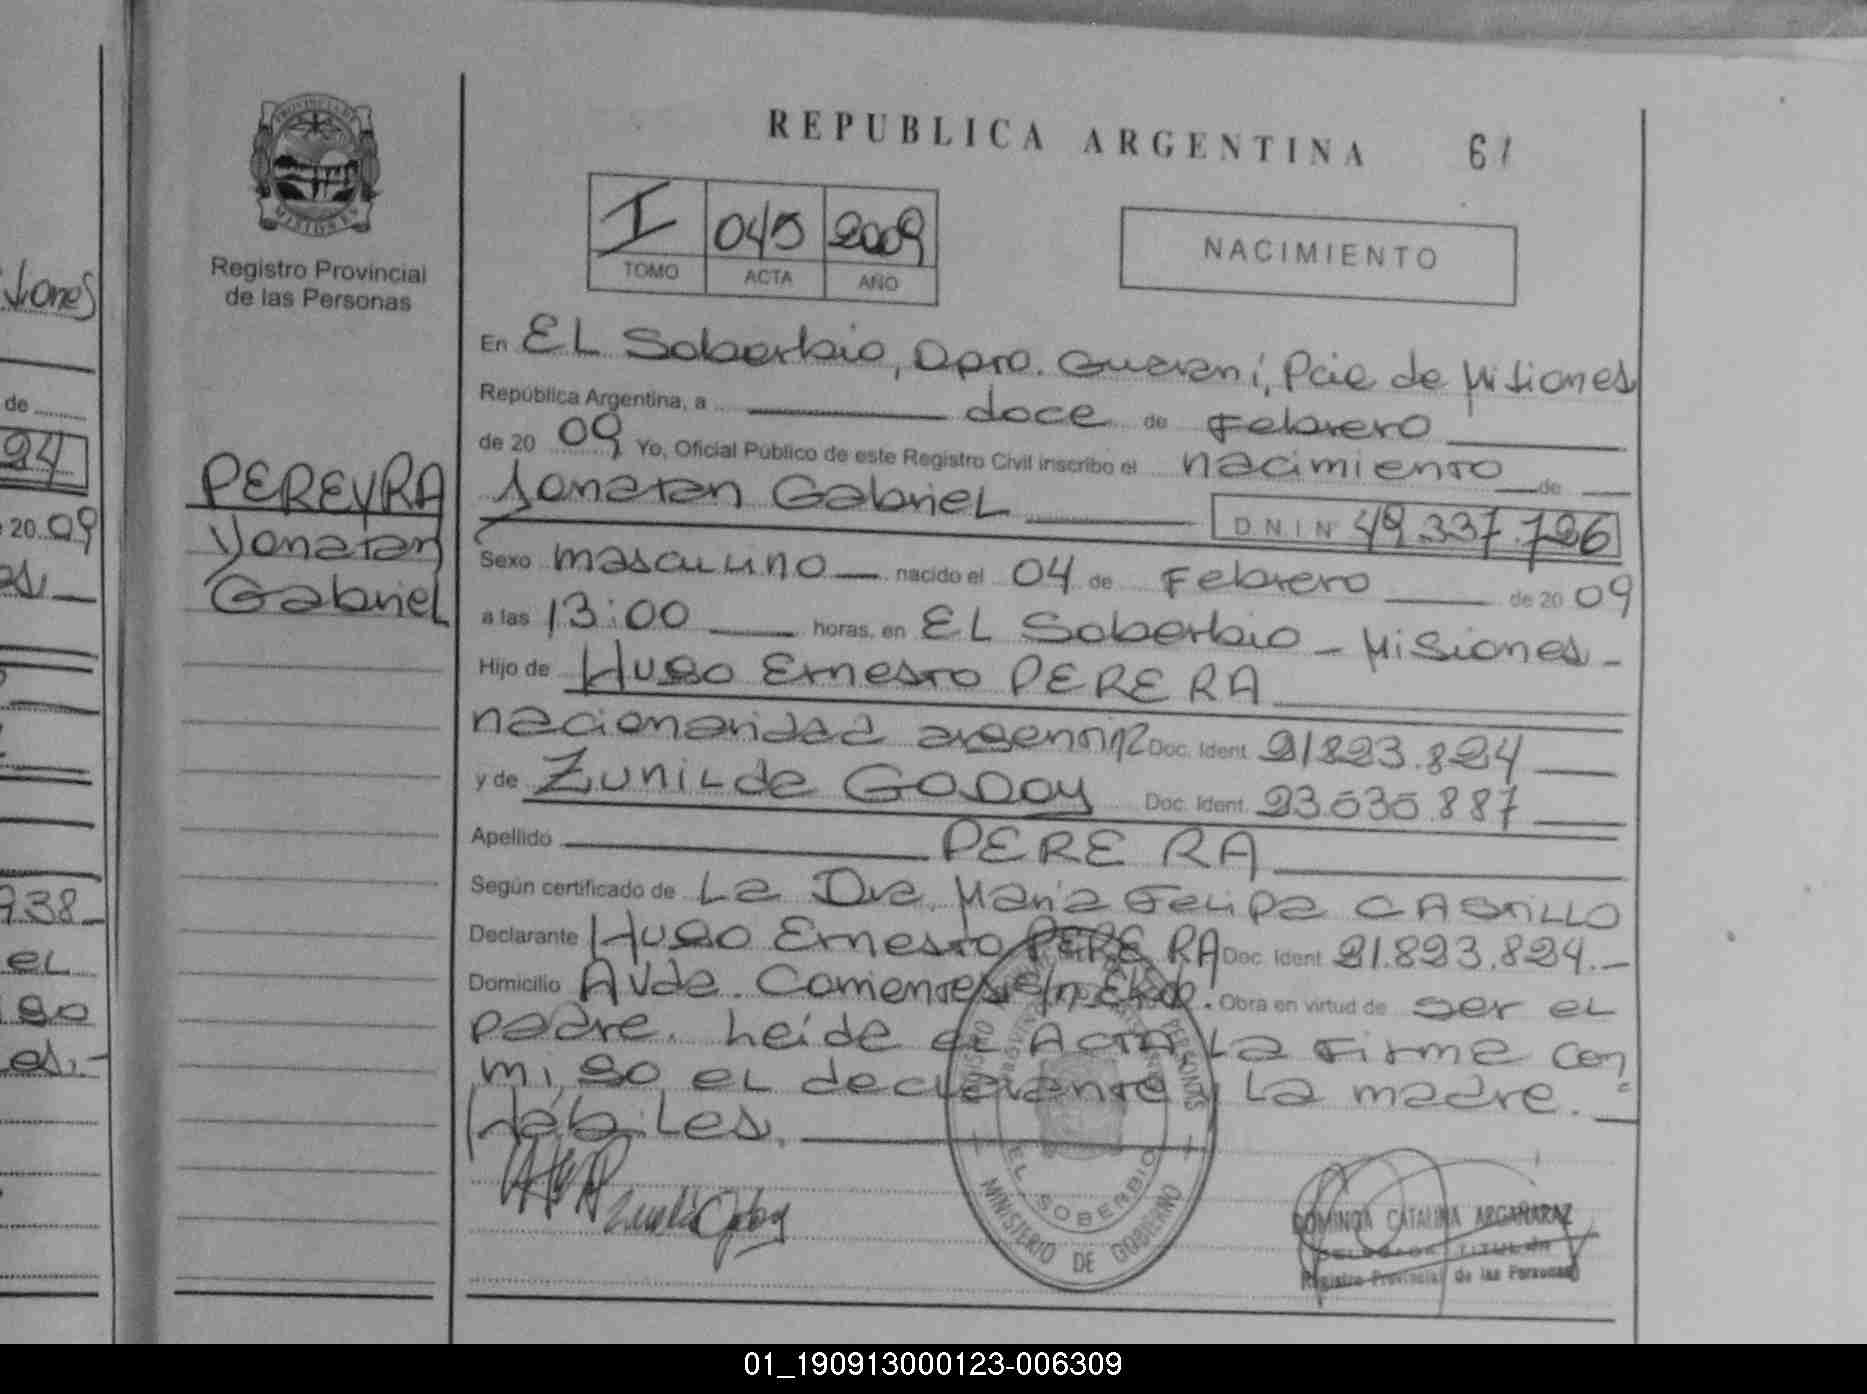 REPUBLICA ARGENTINA 61
I 045 2009
TOMO ACTA AÑO
NACIMIENTO
Registro Provincial
de las Personas
PEREYRA
Yonatan
Gabriel
En EL Soberbio, Dpto. Guaraní, Pcie de Misiones
República Argentina, a doce de Febrero
de 20 09 Yo, Oficial Público de este Registro Civil inscribo el nacimiento de
Yonatan Gabriel D.N.I Nº 49.337.726
Sexo masculino nacido el 04 de Febrero de 20 09
a las 13:00 horas, en EL Soberbio - Misiones -
Hijo de Hugo Ernesto PERE RA
nacionalidad argentina Doc. Ident. 21823.824
y de Zunilde GODOY Doc. Ident. 23.030.887
Apellido PERE RA
Según certificado de La Dra. María Felipa CASTILLO
Declarante Hugo Ernesto PERE RA Doc. Ident 21.823.824.-
Domicilio Avda. Corrientes s/n Obra en virtud de ser el
padre. Leída el ACTA La Firma con
migo el declarante y La madre.
Hábiles.
REGISTRO PROVINCIAL DE LAS PERSONAS
EL SOBERBIO
MINISTERIO DE GOBIERNO
DOMINGA CATALINA ARGAÑARAZ
DELEGADA TITULAR
Registro Provincial de las Personas
tiones
de
24
20 09
938
el
go
es.-
01_190913000123-006309